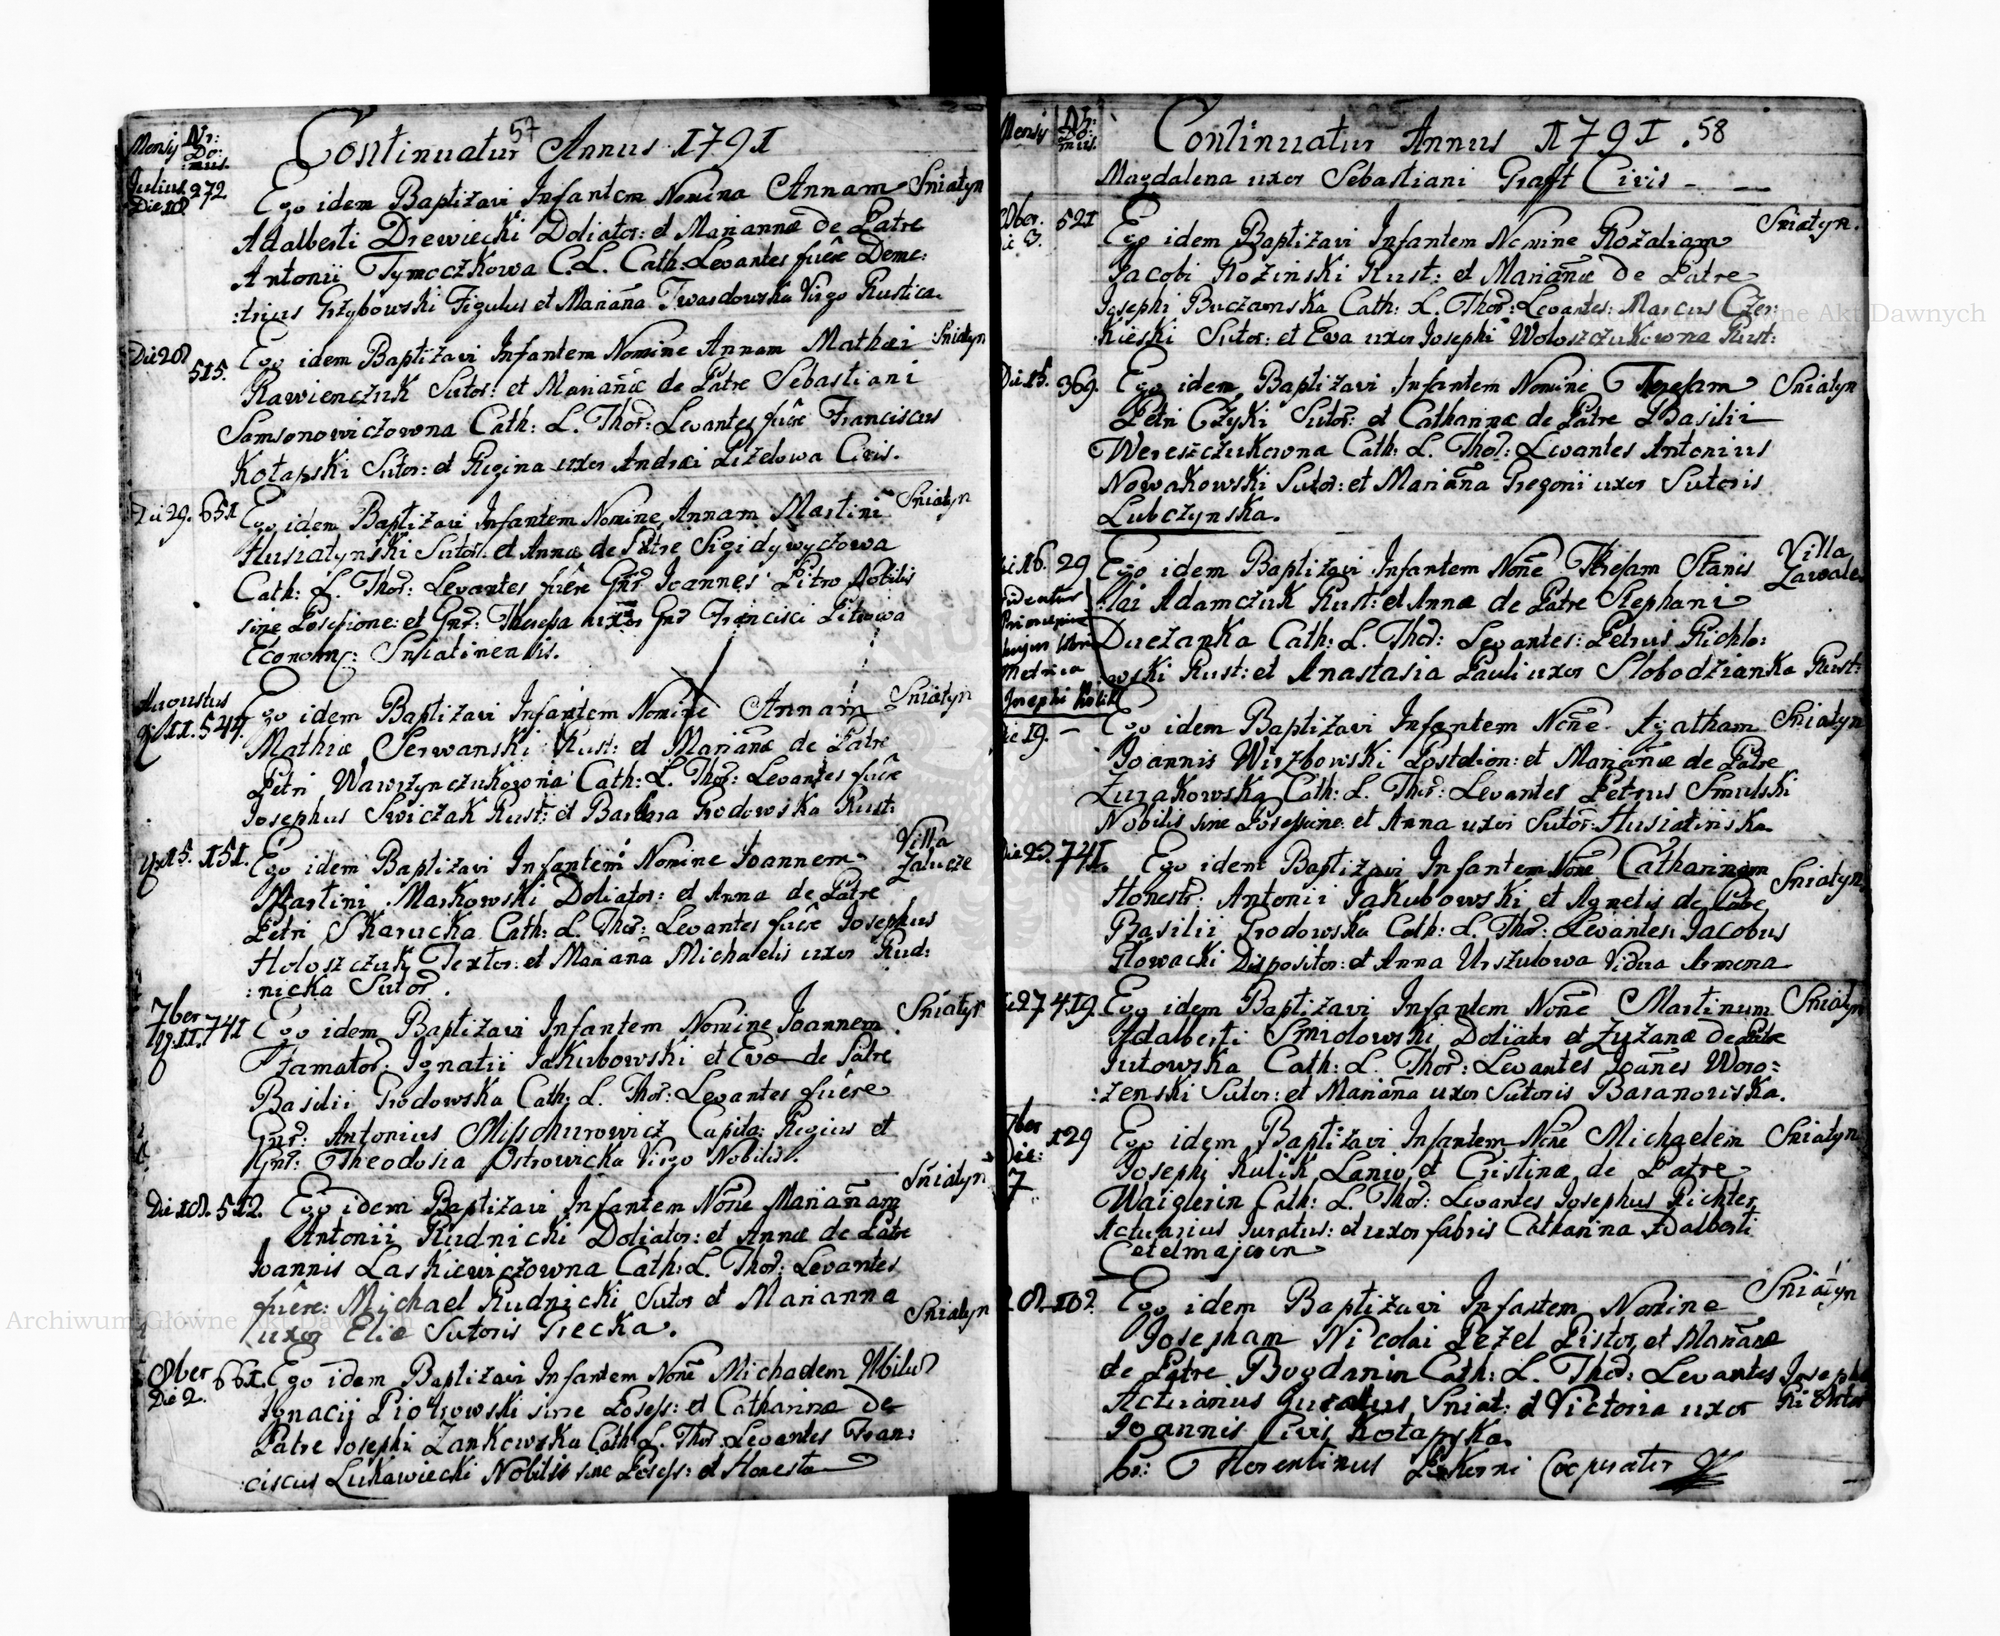 57
Mensis Nr: Domus.
Continuatur Annus 1791
Julius Die 18 272
Ego idem Baptizavi Infantem Nomina Annam Sniatyn
Adalberti Drewiecki Doliator: et Mariannæ de Patre
Antonii Tymoczkowa C. L. Cath: Levantes fuêre Deme:
:trius Grzybowski Figulus et Mariana Twardowska Virgo Rustica.
Die 20 515.
Ego idem Baptizavi Infantem Nomine Annam Mathæi Sniatyn
Rawienczuk Sutor: et Marianæ de Patre Sebastiani
Samsonowiczowna Cath: L. Thor: Levantes fuêre Franciscus
Kotapski Sutor: et Regina uxor Andræi Lizelowa Civis.
Die 29. 651
Ego idem Baptizavi Infantem Nomine Annam Martini Sniatyn
Husiatynski Sutor: et Annæ de Patre
Cath: L. Thor: Levantes fuêre Gnr: Joannes Pitro Nobilis
sine Posessione: et Gnr: Theressa uxor Gnr Francisci Pitrowa
Econom: Sniatinensis.
Augustus 11. 544.
Ego idem Baptizavi Infantem Nomine Annam Sniatyn
Mathiæ Serwanski Rust: et Marianæ de Patre
Petri Wawrzynczukowna Cath: L. Thor: Levantes fuêre
Josephus Swiczak Rust: et Barbara Grodowska Rust:
15. 151.
Ego idem Baptizavi Infantem Nomine Joannem Villa Zalucze
Martini Markowski Doliator: et Anna de Patre
Petri Skarucka Cath: L. Thor: Levantes fuêre Josephus
Holoszczuk Textor: et Mariana Michaelis uxor Rud:
:nicka Sutor.
7ber 11. 741
Ego idem Baptizavi Infantem Nomine Joannem Sniatyn
Famator: Ignatii Jakubowski et Evæ de Patre
Basilii Grodowska Cath: L. Thor: Levantes fuêre
Gnr: Antonius Missehurowicz Capita: Regius et
Gnr: Theodosia Ostrowicka Virgo Nobilis.
Die 18. 512.
Ego idem Baptizavi Infantem None Marianam Sniatyn
Antonii Rudnicki Doliator: et Annæ de Patre
Joannis Laskiewiczowna Cath: L. Thor: Levantes
fuêre: Michael Rudnicki Sutor et Marianna
uxor Eliæ Sutoris Grecka.
8ber Die 2. 661.
Ego idem Baptizavi Infantem None Michaelem Nbilis Sniatyn
Ignacij Piotrowski sine Posess: et Catharinæ de
Patre Josephi Zankowska Cath: L. Thor: Levantes Fran:
:ciscus Lukawiecki Nobilis sine Posess: et Honesta
Mensis Nr: Domus.
Continuatur Annus 1791. 58
Magdalena uxor Sebastiani Grafft Civis - -
8ber. Die 3. 521
Ego idem Baptizavi Infantem Nomine Rozaliam Sniatyn.
Jacobi Rozinski Rust: et Marianæ de Patre
Josephi Buczamska Cath: L. Thor: Levantes: Marcus Czer:
kieski Sutor: et Eva uxor Josephi Woloszczukowna Rust:
Die 15. 369.
Ego idem Baptizavi Infantem Nomine Teresam Sniatyn
Petri Czyski Sutor: et Catharinæ de Patre Basilii
Wereszczukowna Cath: L. Thor: Levantes Antonius
Nowakowski Sutor: et Mariana Gregorii uxor Sutoris
Lubczynska.
Die 16. 29
Ego idem Baptizavi Infantem None Theresam Stanis Villa Zawale
:lai Adamczuk Rust: et Annæ de Patre Stephani
Duczanka Cath: L. Thor: Levantes: Petrus Richlo:
:wski Rust: et Anastasia Pauli uxor Slobodzianka Rust:
Videatur Principium hujus libri Metrica Josephi Kolik
Die 19. -
Ego idem Baptizavi Infantem None. Agatham Sniatyn
Joannis Wirzbowski Postelion: et Marianæ de Patre
Zurakowska Cath: L. Thor: Levantes Petrus Smulski
Nobilis sine Posessione et Anna uxor Sutor: Husiatinska
Die 22. 741.
Ego idem Baptizavi Infantem None Catharinam Sniatyn
Honestr: Antonii Jakubowski et Agnetis de Patre
Basilii Grodowska Cath: L. Thor: Levantes: Jacobus
Glowacki Dispositor: et Anna Urszulowa Vidua Armena
Die 27. 419.
Ego idem Baptizavi Infantem None Martinum Sniatyn
Adalberti Smidowski Doliator et Zuzanæ de Patre
Jutowska Cath: L. Thor: Levantes Joanes Woro:
:zenski Sutor: et Mariana uxor Sutoris Baranowska.
Die: 7 129
Ego idem Baptizavi Infantem None Michaelem Sniatyn
Josephi Kulik Lanio et Cristinæ de Patre
Waiglerin Cath: L. Thor: Levantes Josephus Richter
Actuarius Juratus: et uxor fabris Catharina Adalberti
Cetelmajerin
102.
Ego idem Baptizavi Infantem Nomine Sniatyn
Josepham Nicolai Pezel Pistor et Marianæ
de Patre Bogdanin Cath: L. Thor: Levantes Josephus Richter
Actuarius Juratus Sniat: et Victoria uxor
Joannis Civis Kotapska.
Florentinus Cooperator
Archiwum Główne Akt Dawnych
Archiwum Główne Akt Dawnych